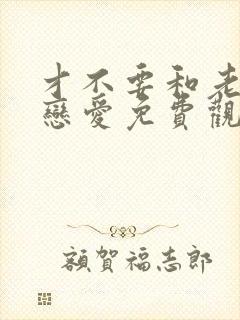 才不要和老
戀愛免費觀
額賀福志郎